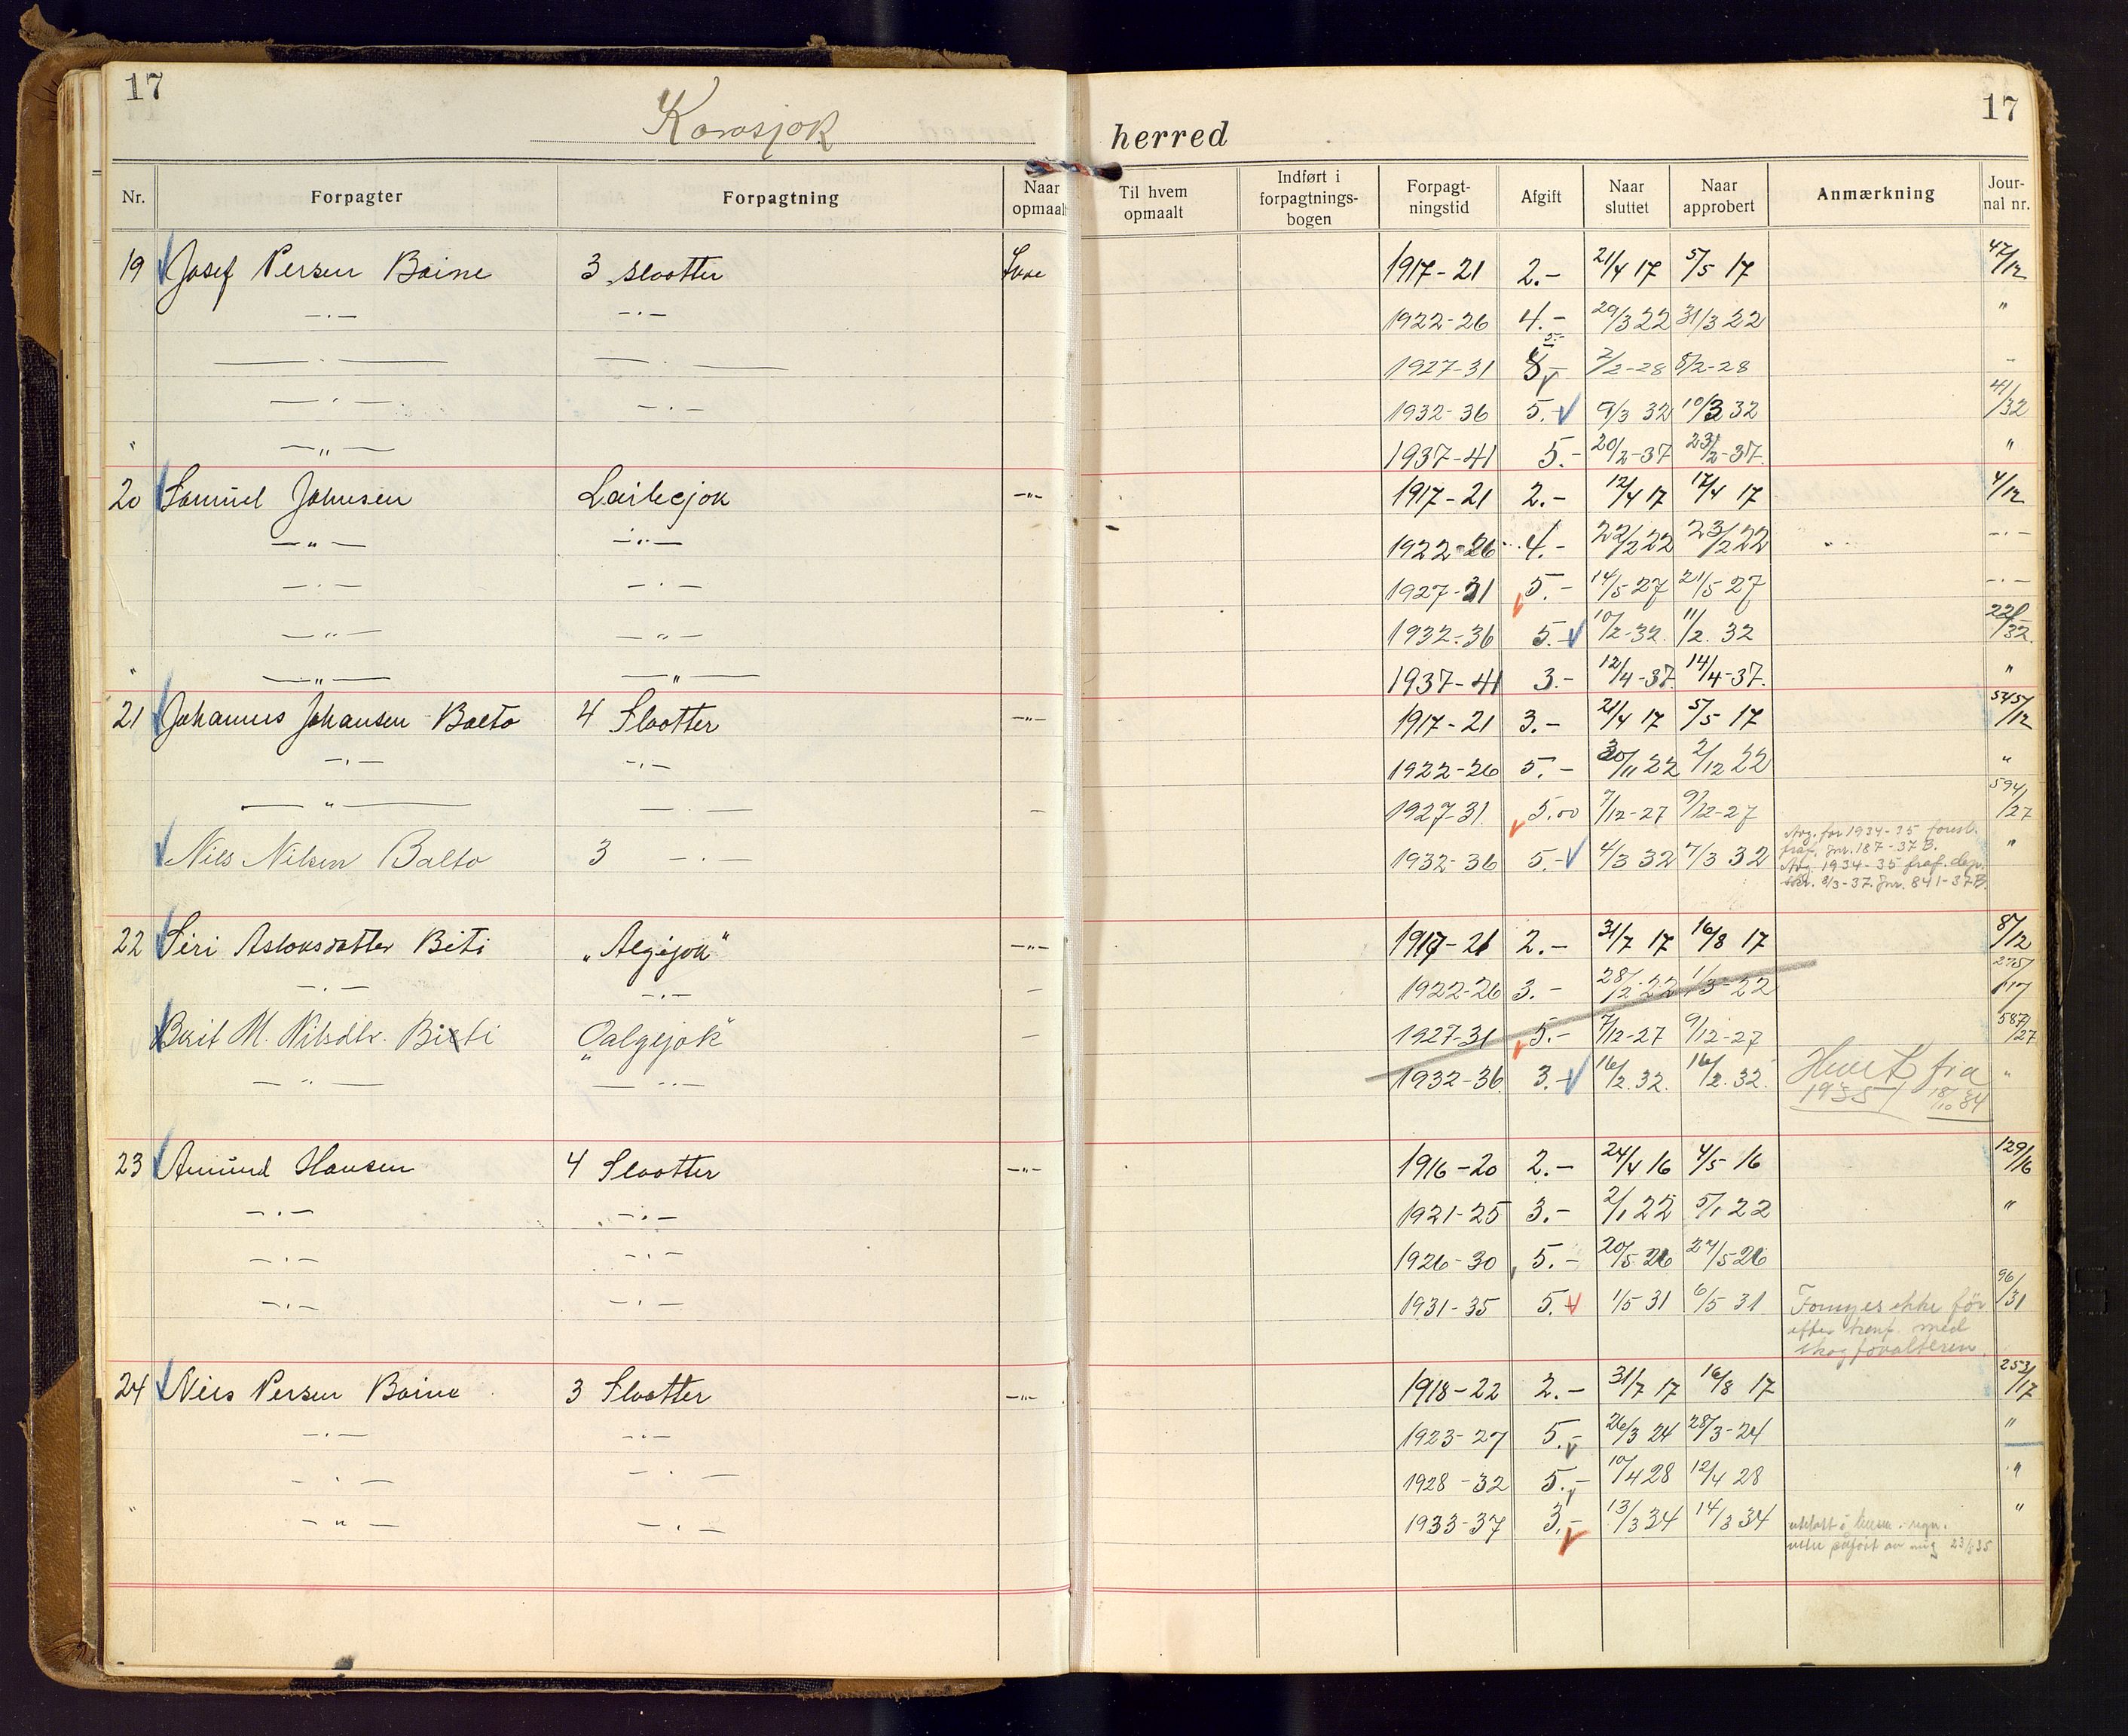 17
17
Karasjok herred
Nr. Forpagter Forpagtning Naar opmaalt Til hvem opmaalt Indført i forpagtnings-bogen Forpagt-ningstid Afgift Naar sluttet Naar approbert Anmærkning Jour-nal nr.
19 Josef Persen Boine 3 slaatter 1917-21 2.- 21/4 17 5/5 17 47/12
-.- -.- 1922-26 4.- 29/3 22 31/3 22 "
-.- -.- 1927-31 5.- 2/2-28 8/2-28 -
-.- -.- 1932-36 5.- 9/3 32 10/3 32 41/32
" -"- 1937-41 5.- 20/2-37 23/2-37. "
20 Samuel Johnsen -"- 1917-21 2.- 12/4 17 17/4 17 4/12
-"- -"- 1922-26 4.- 22/2 22 23/2 22 -.-
-.- -.- 1927-31 5.- 14/5 27 21/5 27 -.-
-"- -"- 1932-36 5.- 10/2-32. 11/2. 32 221/32.
" -"- -"- 1937-41 3.- 12/4-37. 14/4-37. "
21 Johannes Johansen Balto 4 Slaatter -"- 1917-21 3.- 21/4 17 5/5 17 54 57/12
-.- -.- 1922-26 5.- 30/11 22 2/12 22 "
-"- -.- - 1927-31. 5.00 7/12-27 9/12-27 594/27
Nils Nilsen Balto 3 -.- 1932-36 5.- 4/3 32 7/3 32 "
Avg. for 1934-35 foresl.
fraf. Jnr. 187-37 B.
Avg. 1934-35 fraf. dep.
skr. 8/3-37. Jnr. 841-37B.
22 Siri Aslaksdatter Biti „Algejok" -"- 1917-21 2.- 31/7 17 16/8 17 87/12
-.- -.- - 1922-26 3.- 28/2-22 1/3-22 275/17
Berit M. Nilsdtr. Biti „Oalgejok" - 1927-31 5.- 7/12-27 9/12-27 587/27
-"- -"- 1932-36 3.- 16/2. 32. 16/2. 32. Hevet fra "
1935 18/10 34
23 Amund Hansen 4 Slaatter -"- 1916-20 2.- 24/4 16 4/5 16 129/16
-.- -.- 1921-25 3.- 2/1 22 5/1 22 "
-.- -.- 1926-30 5.- 20/5 26 27/5-26
-.- -.- 1931-35 5.- 1/5 31 6/5 31 Fornyes ikke før 96/31
efter konf. med
skogforvalteren.
24 Nils Persen Boine 3 Slaatter -"- 1918-22 2.- 31/7 17 16/8 17 253/17
-.- -.- 1923-27 5.- 26/3 24 28/3-24 "
-.- -.- 1928-32 5.- 10/4 28 12/4 28 "
" -"- -.- 1933-37 3.- 13/3 34 14/3 34 "